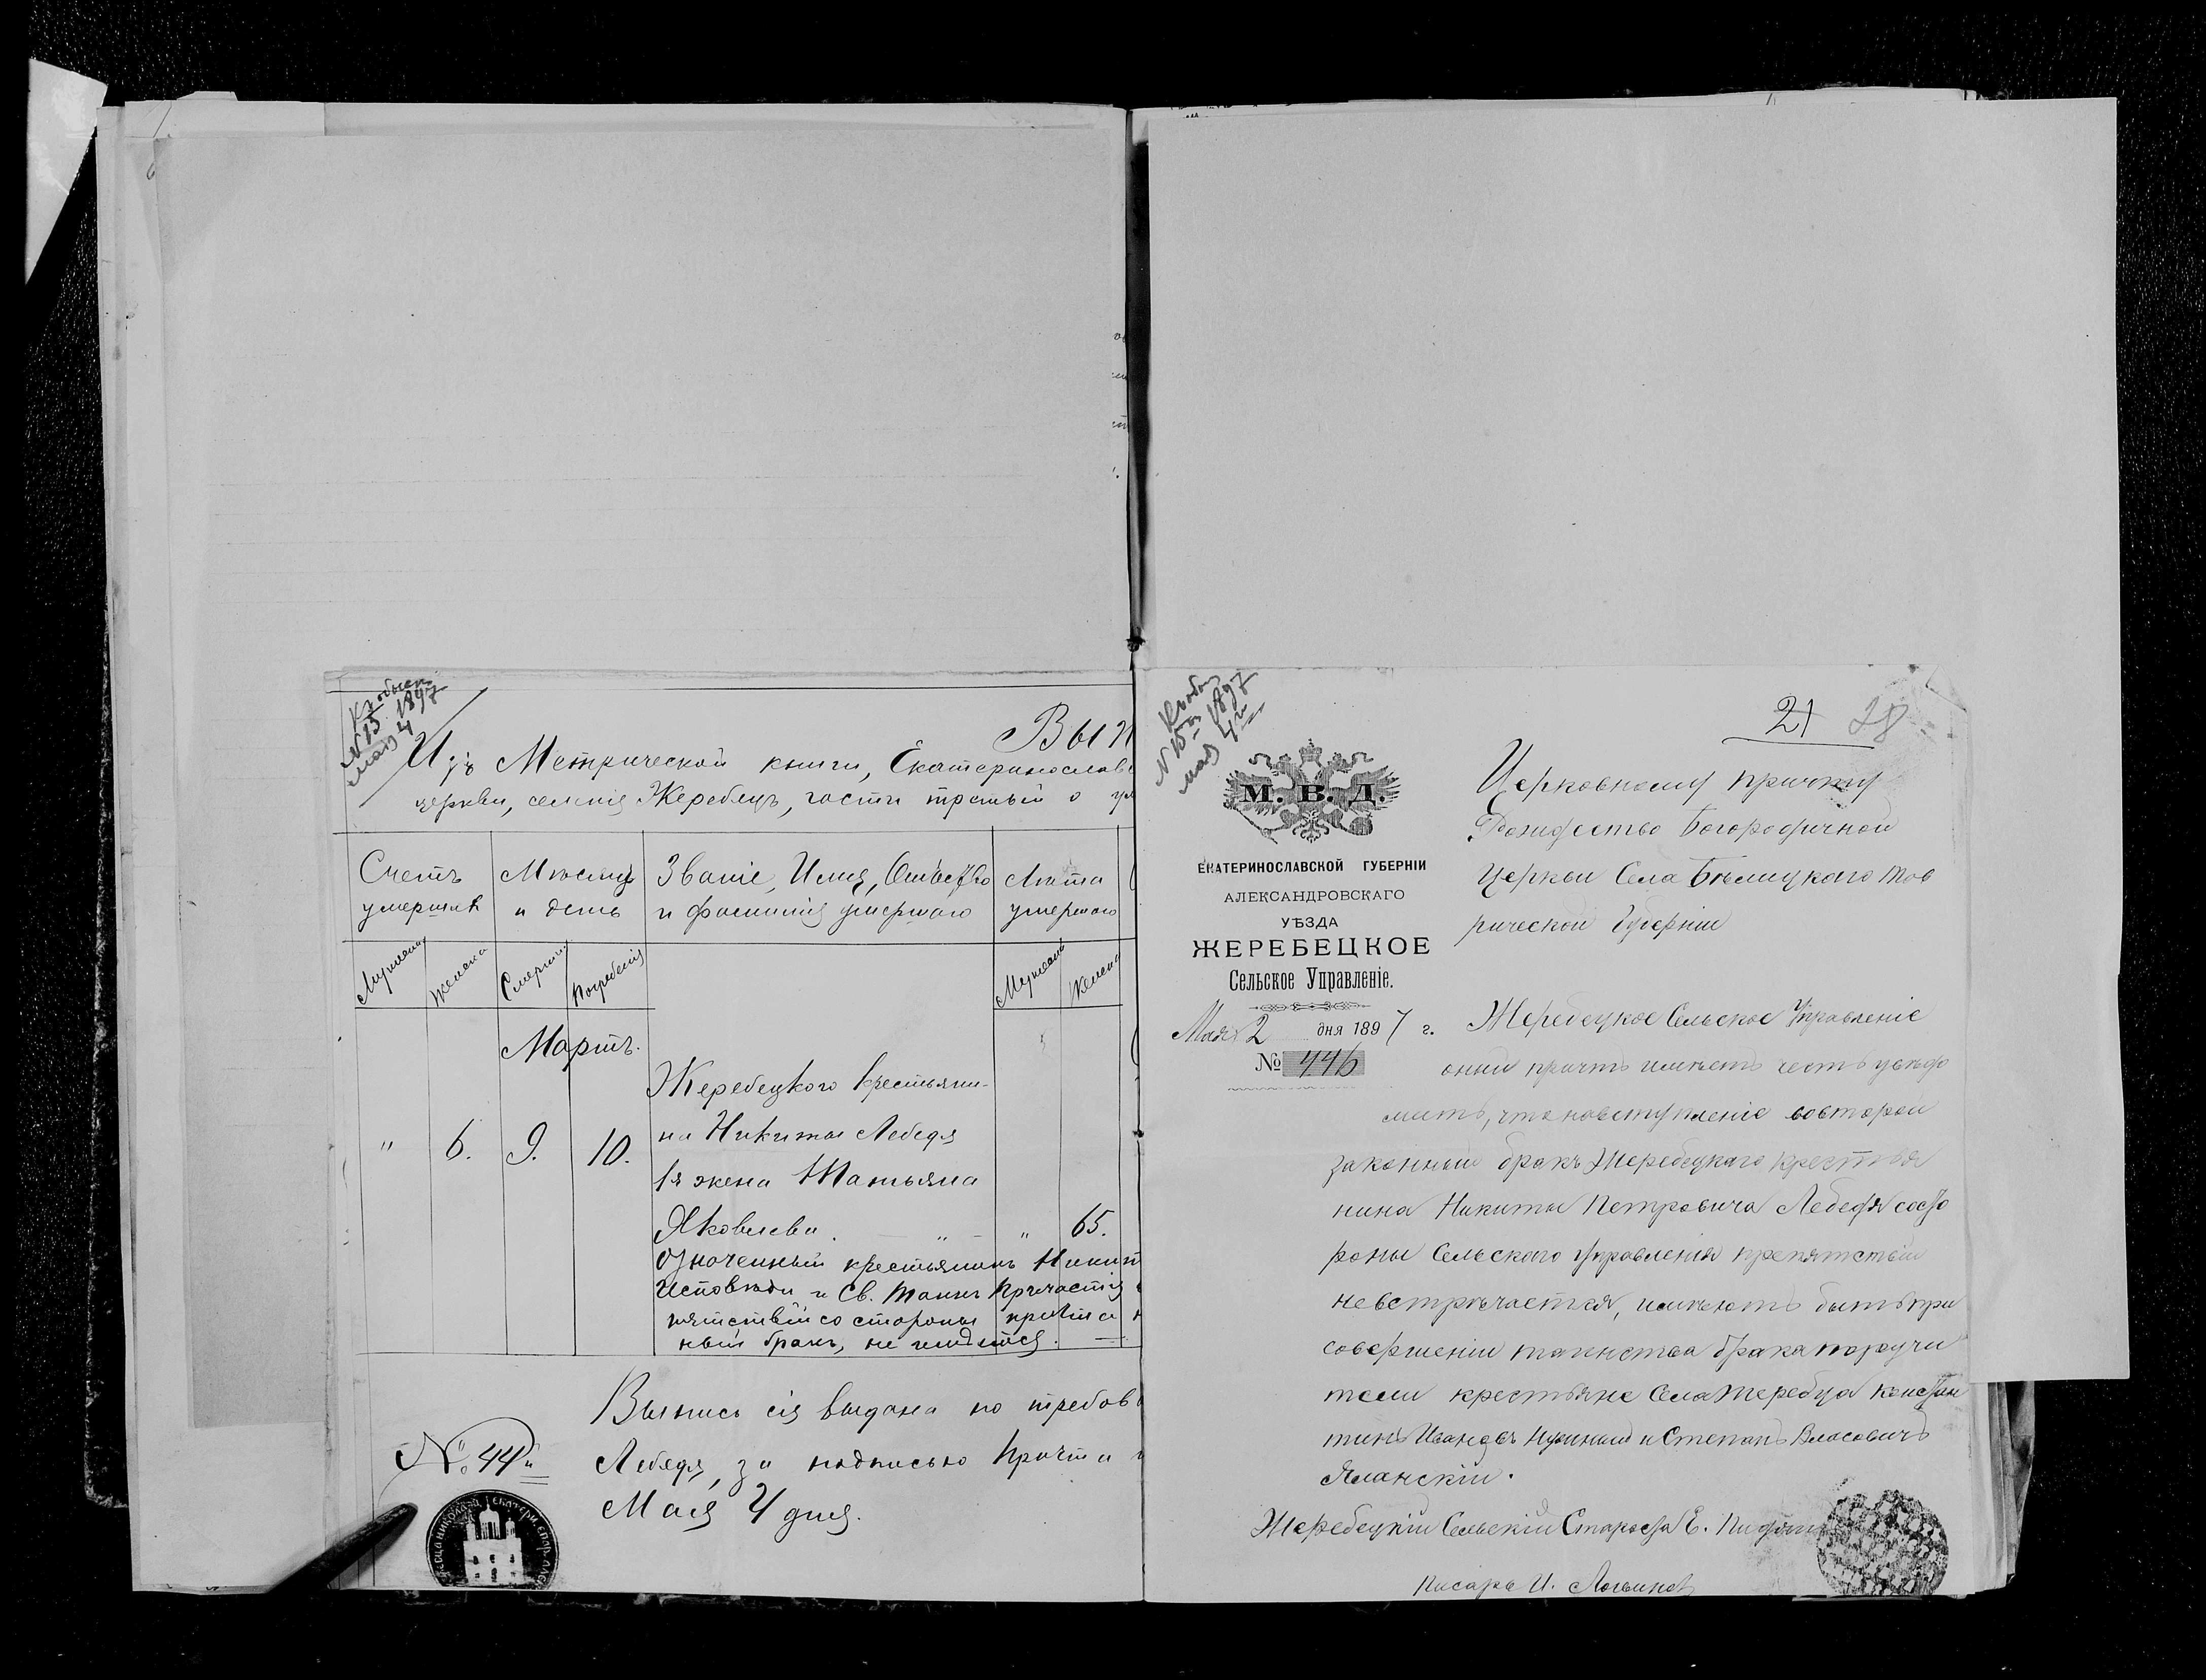 Къ обыск
N 15. 1897
мая 4
Вып
Изъ Метрической книги, Екатеринослав
церкви, селенія Жеребецъ, части третьей о ум
Счетъ умершихъ
Мѣсяцъ и день
Званіе, Имя, Отчество и фамилія умершаго
Лѣта умершаго
Мужеска
Женска
Смерти
Погребенія
Мужеска
Женска
Мартъ.
Жеребецкого крестьяни-
" 6. 9. 10. на Никиты Лебедя
1я жена Татьяна
Яковлева. " - " 65.
Означенный крестьянинъ Никит
Исповѣди и Св. Таинъ Причастія
пятствій со стороны причта к
ный бракъ, не имѣется.
Выпись сія выдана по требов
№ 44й Лебедя, за подписью Причта и
Мая 4 дня.
21 28
Къ обыс
N 15й 1897
мая 4го
М. В. Д.
ЕКАТЕРИНОСЛАВСКОЙ ГУБЕРНІИ
АЛЕКСАНДРОВСКАГО
УѢЗДА
ЖЕРЕБЕЦКОЕ
Сельское Управленіе.
Мая 2 дня 1897 г.
№ 446
Церковному причту
Рождество Богородичной
Церкви Села Бѣлицкаго Тав
рической Губерніи
Жеребецкое Сельское Управленіе
оный причтъ имѣетъ честь увѣдо
мить, что навступленіе вовторой
законный бракъ Жеребецкаго крестья
нина Никиты Петровича Лебедя состо
роны Сельскаго Управленія препятствій
невстрѣчается, имѣютъ быть при
совершеніи таинства брака поручи
тели крестьяне Села Жеребца Констан
тинъ Ивановъ и Степанъ Власовичъ
Яланскій.
Жеребецкій Сельскій Староста Е.
Писарь И.